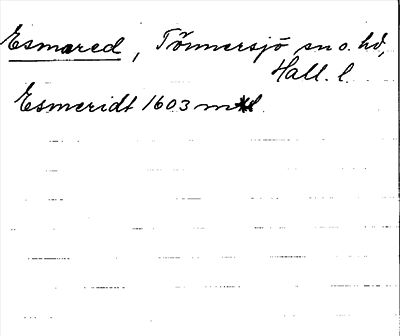 Esmared, Tönnersjö sn o. hd,
Hall. l.
Esmeridt 1603